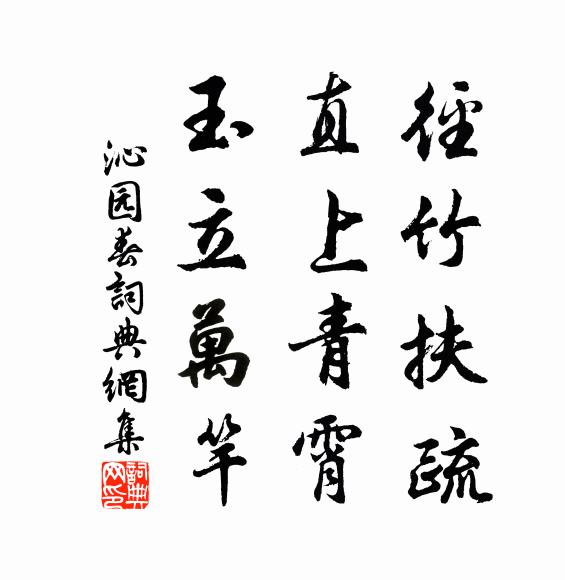 徑竹扶疏
直上青霄
玉立萬竿
沁园春詞典網集